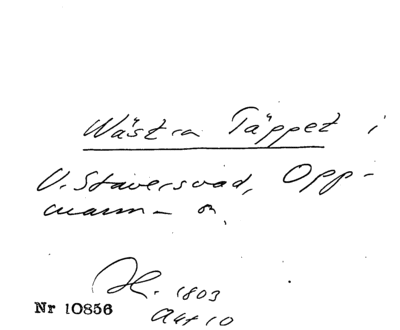 Wästra Täppet i
V. Staversvad, Opp-
manna- sn.
H. 1803
Akt 10
Nr 10856